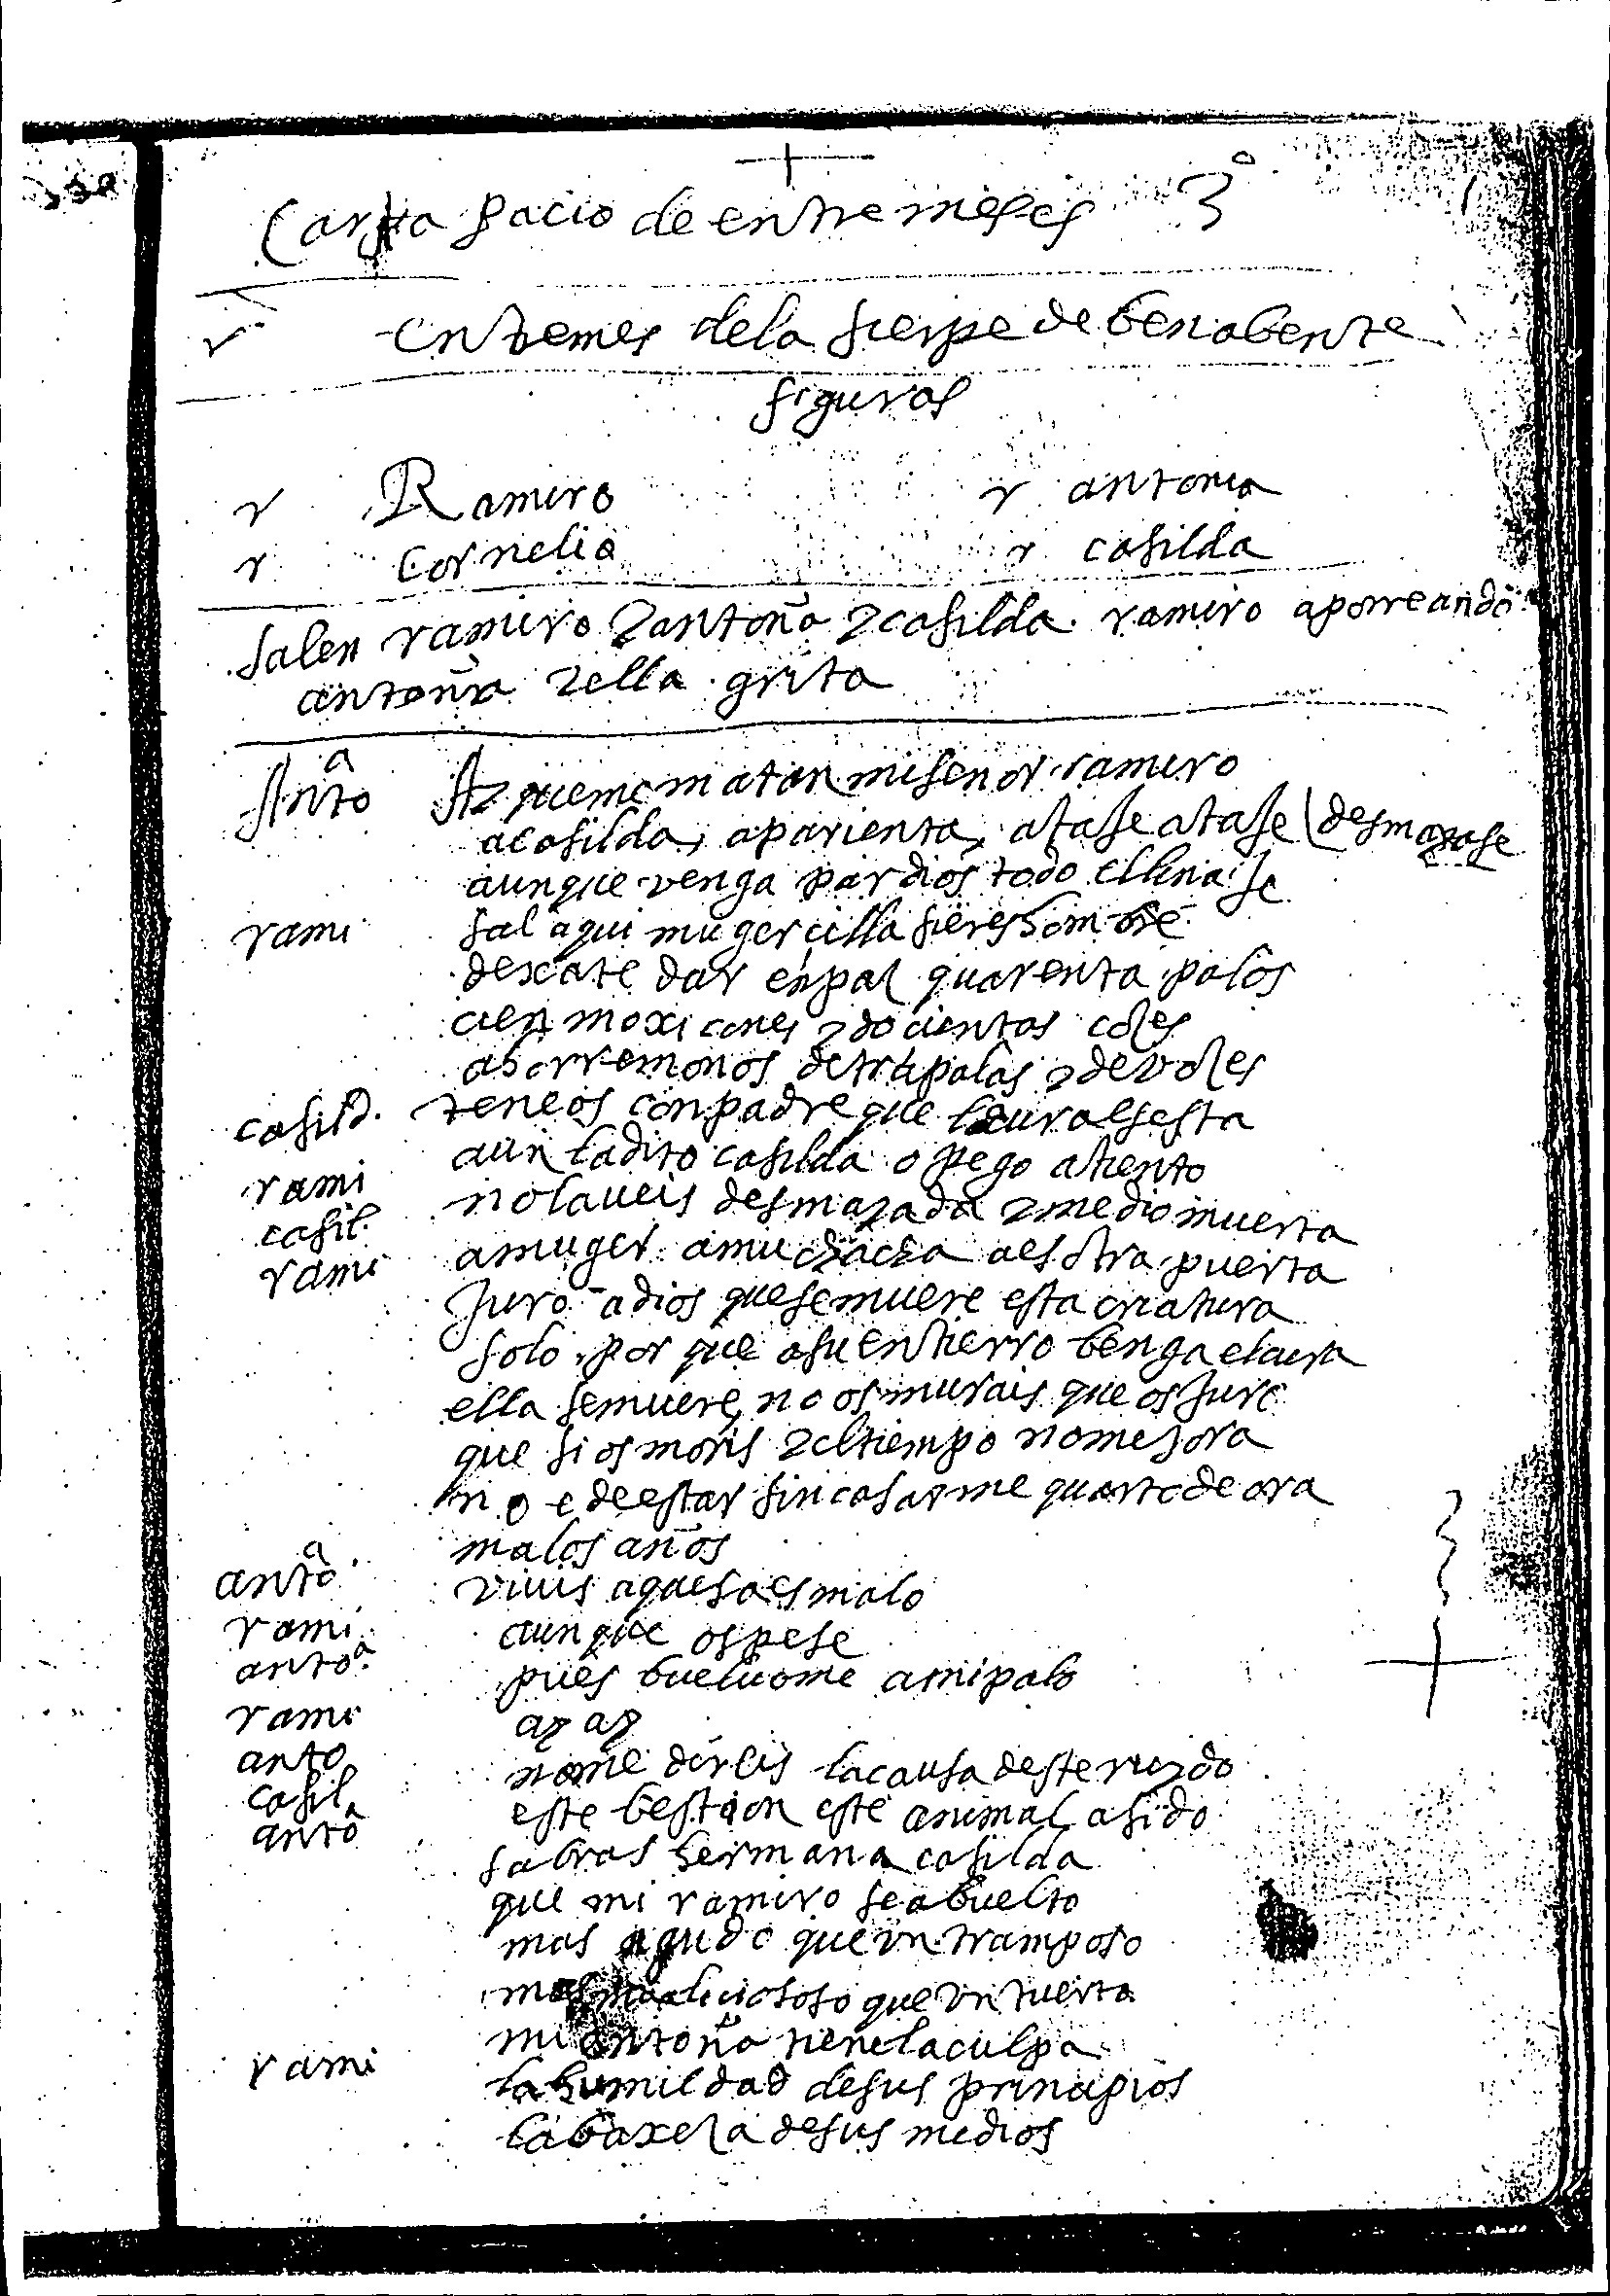 Cartapacio de entremeses 3º
1
entremes de la sierpe de benabente
figuras
Ramiro antonia
Cornelio casilda
salen ramiro y antoña y casilda. ramiro aporreando
antoña y ella grita
Antoª Ay que me matan mi señor ramiro
a casilda, a parienta, atase atase desmayase
aunque venga par dios todo el linaje
rami sal aqui mugercilla si eres hombre
dexate dar en paz quarenta palos
cien moxicones y docientas cozes
ahorremonos de trapalas y de vozes
casild. teneos conpadre que locura es esta
rami a un ladito casilda o pego a tiento
casil. no la veis desmayada y medio muerta
rami a muger a muchacha a esotra puerta
Juro a dios que se muere esta criatura
solo por que a su entierro benga el cura
ella se muere, no os murais que os juro
que si os moris y el tiempo no mejora
no e de estar sin casarme quarto de ora
malos años
antoª vivis aquesa es malo
rami aunque os pese
antoª pues buelvome a mi palo
rami ay ay
anto no me direis la causa deste ruydo
casil este bestion este animal a sido
antoª sabras hermana casilda
que mi ramiro se a buelto
mas agudo que un tramposo
mas malicioso que un tuerto
mi antoña tiene la culpa
rami la humildad de sus principios
la baxeza de sus medios